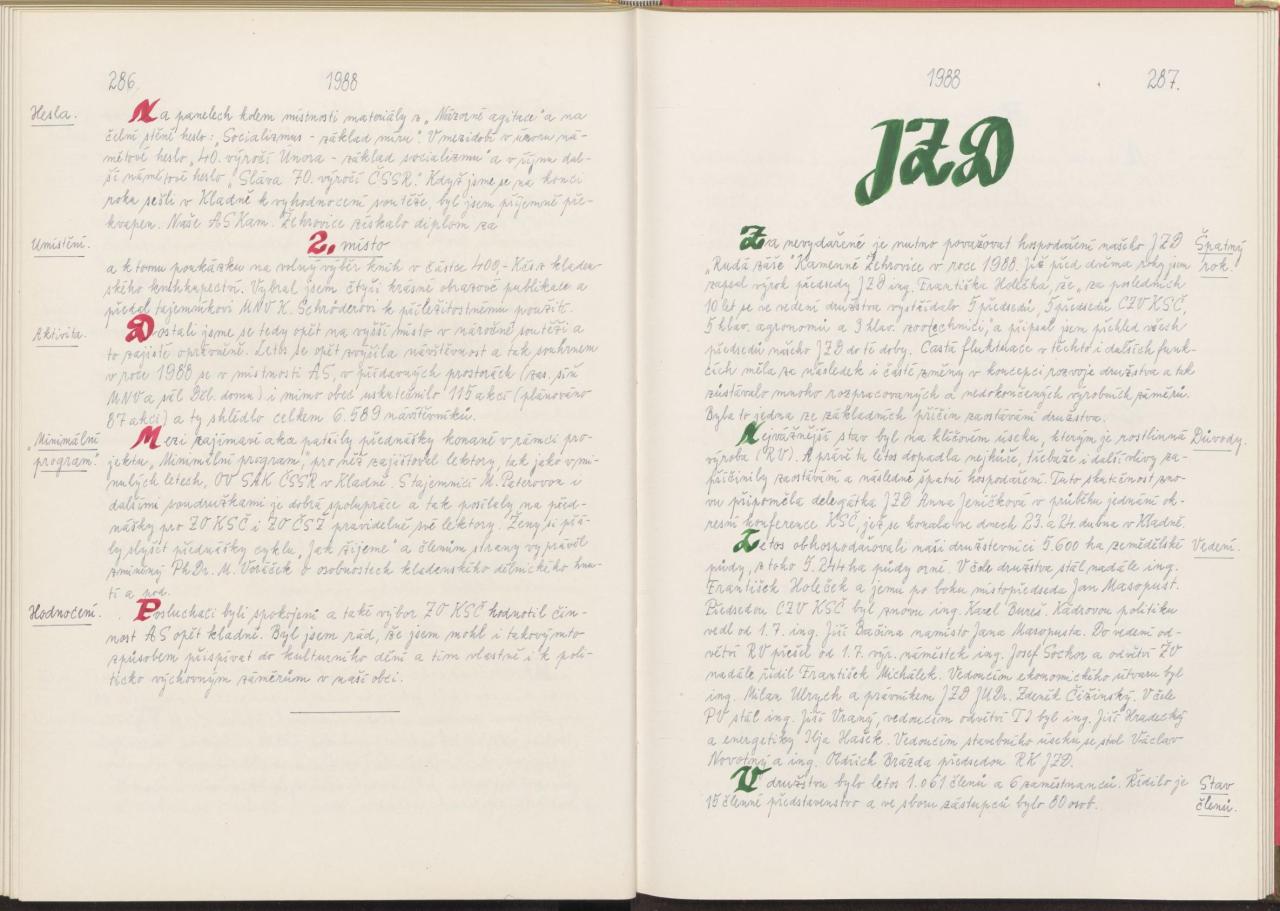 286.
1988
Hesla.
Na panelech kolem místnosti materiály z „Názorné agitace" a na
čelní stěně heslo: „Socializmus - základ míru". V mezidobí v únoru ná-
mětové heslo „40. výročí Února - základ socializmu" a v říjnu dal-
ší námětové heslo „Sláva 70. výročí ČSSR." Když jsme se na konci
roku sešli v Kladně k vyhodnocení soutěže, byl jsem příjemně pře-
kvapen. Naše AS Kam. Žehrovice získalo diplom za
Umístění.
2. místo
a k tomu poukázku na volný výběr knih v částce 400,- Kčs z kladen-
ského knihkupectví. Vybral jsem čtyři krásné obrazové publikace a
předal tajemníkovi MNV K. Schröderovi k příležitostnému použití.
Aktivita.
Dostali jsme se tedy opět na vyšší místo v národní soutěži a
to zajisté oprávněně. Letos se opět zvýšila návštěvnost a tak souhrnem
v roce 1988 se v místnosti AS, v přidavných prostorách (zas. síň
MNV a sál Děl. domu) i mimo obec uskutečnilo 115 akcí (plánováno
87 akcí) a ty shlédlo celkem 6.589 návštěvníků.
„Minimální
program."
Mezi zajímavé akce patřily přednášky konané v rámci pro-
jektu „Minimální program," pro něž zajišťoval lektory, tak jako v mi-
nulých letech, OV SAK ČSSR v Kladně. S tajemnicí M. Paterovou i
dalšími soudružkami je dobrá spolupráce a tak posílaly na před-
nášky pro ZO KSČ i ZO ČSŽ pravidelně své lektory. Ženy si přá-
ly slyšet přednášky cyklu „Jak žijeme" a členům strany vyprávěl
zmíněný PhDr. M. Voráček o osobnostech kladenského dělnického hnu-
tí a pod.
Hodnocení.
Posluchači byli spokojeni a také výbor ZO KSČ hodnotil čin-
nost AS opět kladně. Byl jsem rád, že jsem mohl i takovýmto
způsobem přispívat do kulturního dění a tím vlastně i k poli-
ticko výchovným záměrům v naší obci.
1988
287.
JZD
Za nevydařené je nutno považovat hospodaření našeho JZD
Špatný
rok.
„Rudá záře" Kamenné Žehrovice v roce 1988. Již před dvěma roky jsem
zapsal výrok předsedy JZD ing. Františka Holečka, že „za posledních
10 let se ve vedení družstva vystřídalo 5 předsedů, 5 předsedů CZV KSČ,
5 hlav. agronomů a 3 hlav. zootechnici," a připsal jsem přehled všech
předsedů našeho JZD do té doby. Častá fluktuace v těchto i dalších funk-
cích měla za následek i časté změny v koncepci rozvoje družstva a tak
zůstávalo mnoho rozpracovaných a nedokončených výrobních záměrů.
Byla to jedna ze základních příčin zaostávání družstva.
Nejvážnější stav byl na klíčovém úseku, kterým je rostlinná
Důvody.
výroba (RV). A právě ta letos dopadla nejhůře, třebaže i další vlivy za-
příčinily zaostávání a následné špatné hospodaření. Tuto skutečnost zno-
vu připoměla delegátka JZD Anna Jeníčková v průběhu jednání ok-
resní konference KSČ, jež se konala ve dnech 23. a 24. dubna v Kladně.
Letos obhospodařovali naši družstevníci 5.600 ha zemědělské
Vedení.
půdy, z toho 5.244 ha půdy orné. V čele družstva stál nadále ing.
František Holeček a jemu po boku místopředseda Jan Masopust.
Předsedou CZV KSČ byl znovu ing. Karel Bureš. Kádrovou politiku
vedl od 1.7. ing. Jiří Bačina namísto Jana Masopusta. Do vedení od-
větví RV přešel od 1.7. výr. náměstek ing. Josef Sochor a odvětví ŽV
nadále řídil František Michálek. Vedoucím ekonomického útvaru byl
ing. Milan Ulrych a právníkem JZD JUDr. Zdeněk Čižinský. V čele
PV stál ing. Jiří Vraný, vedoucím odvětví TS byl ing. Jiří Hradecký
a energetiky Ilja Hašek. Vedoucím stavebního úseku se stal Václav
Novotný a ing. Oldřich Brázda předsedou RK JZD.
V družstvu bylo letos 1.061 členů a 6 zaměstnanců. Řídilo je
Stav
členů.
15 členné představenstvo a ve sboru zástupců bylo 80 osob.